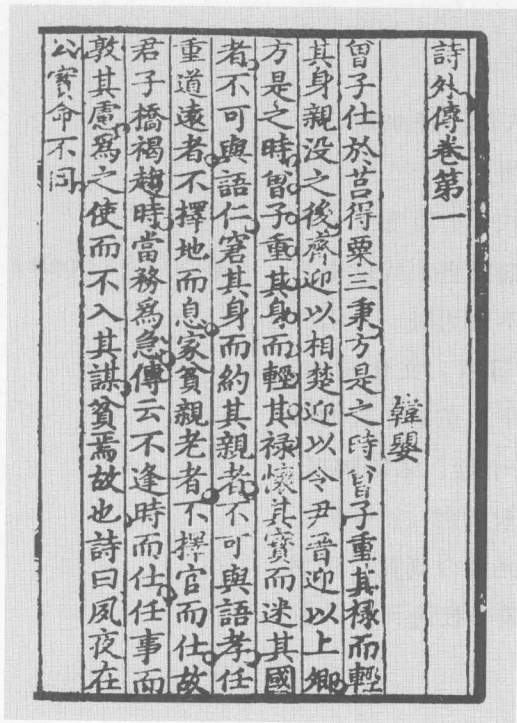 詩外傳卷第一
韓嬰
曾子仕於莒得粟三秉方是之時曾子重其祿而輕
其身親没之後齊迎以相楚迎以令尹晋迎以上卿
方是之時曾子重其身而輕其禄懷其寳而迷其國
者不可與語仁窘其身而約其親者不可與語孝任
重道遠者不擇地而息家貧親老者不擇官而仕故
君子橋褐趨時當務爲急傳云不逢時而仕任事而
敦其慮爲之使而不入其謀貧焉故也詩曰夙夜在
公寳命不同